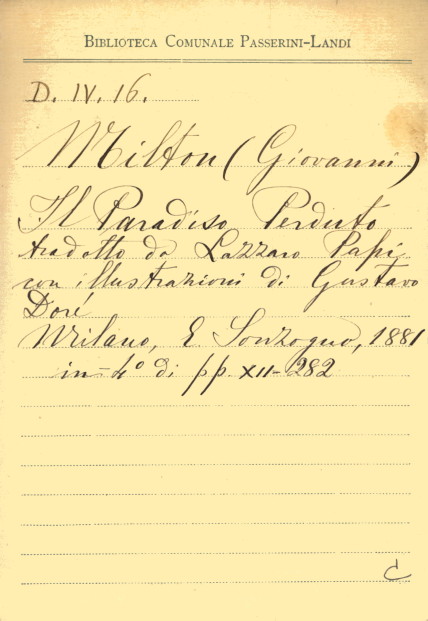 BIBLIOTECA COMUNALE PASSERINI-LANDI
D. IV. 16.
Milton (Giovanni)
Il Paradiso Perduto
tradotto da Lazzaro Papi
con illustrazioni di Gustavo
Doré
Milano, E. Sonzogno, 1881
in-4º di pp. XII-282
C